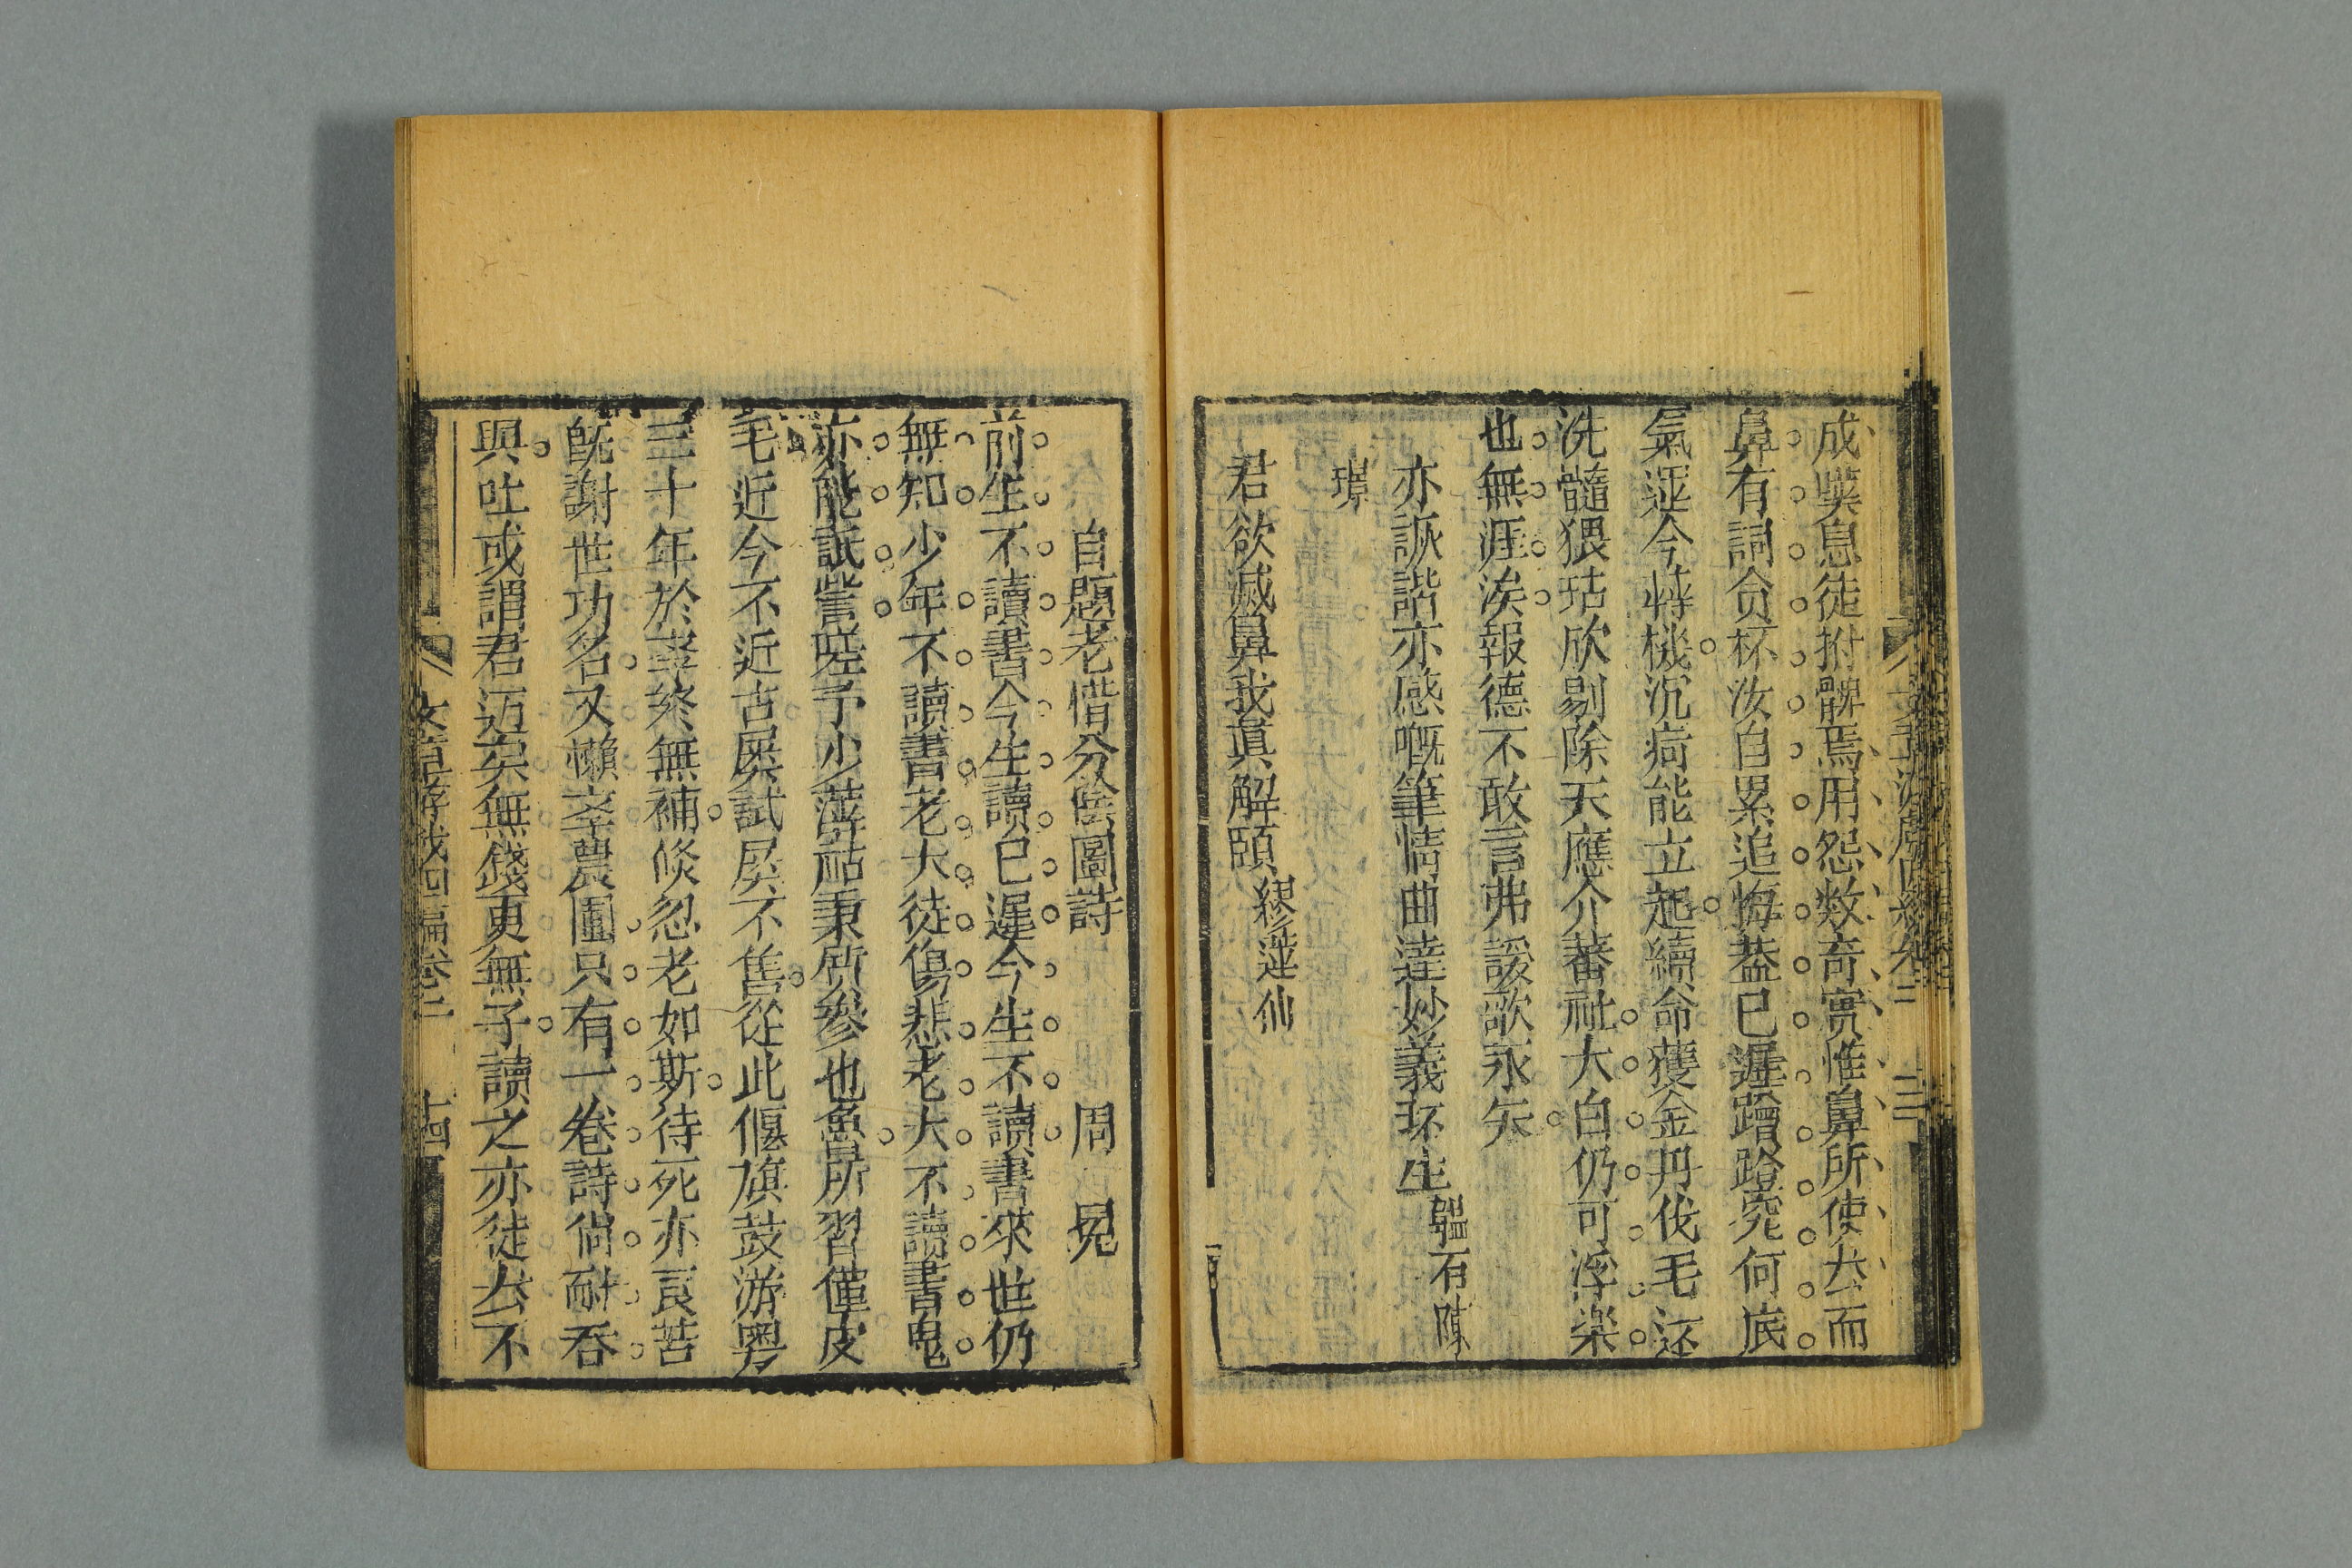 成嘆息徒拊髀焉用怨数奇實惟鼻所使厺而
鼻有詞貪杯汝自累追悔蓋已遲蹭蹬究何底
氣運今轉機沉疴能立起續命獲金丹伐毛还
洗髓猥玷欣剔除天應介蕃祉大白仍可浮樂
也無涯涘報德不敢言弗諼歌永矢
亦詼諧亦感嘅筆情曲達妙義环生 韞石陳
璟
君欲滅鼻我眞解頤 繆蓮仙
自題老惜分陰圖詩 周 冕
前生不讀書今生讀已遲今生不讀書來世仍
無知少年不讀書老大徒傷悲老大不讀書鬼
亦能詆訾嗟予少薄祜秉質參也魯所習僅皮
毛近今不近古屢試屢不售從此偃旗鼓游粤
三十年於宰終無補倐忽老如斯待死亦良苦
既謝世功名又懶李農圃只有一卷詩尚耐吞
與吐或謂君迈矣無錢更無子讀之亦徒厺不
文章游戲四編卷三 十四